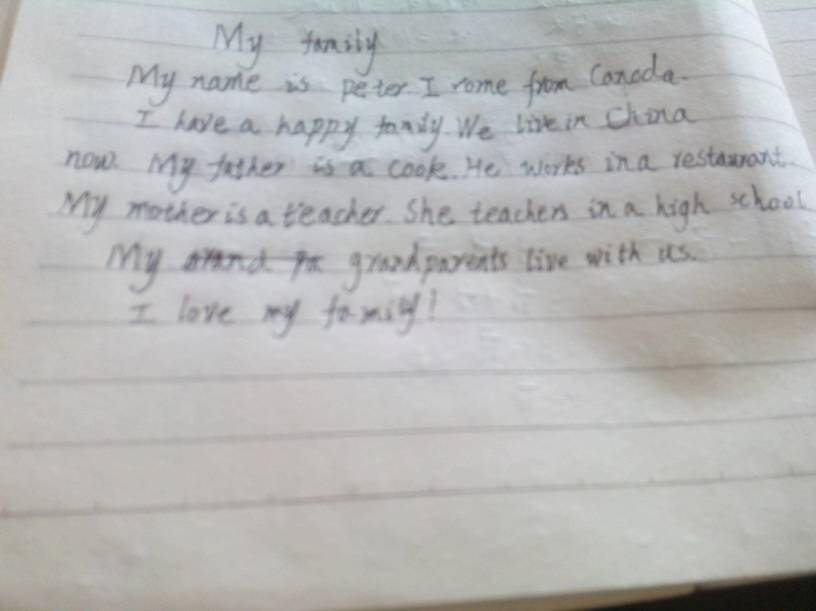 My family
My name is peter I come from Canada.
I have a happy family We live in China
now. My father is a cook. He works in a restaurant.
My mother is a teacher She teachers in a high school
My grandparents live with us.
I love my family!